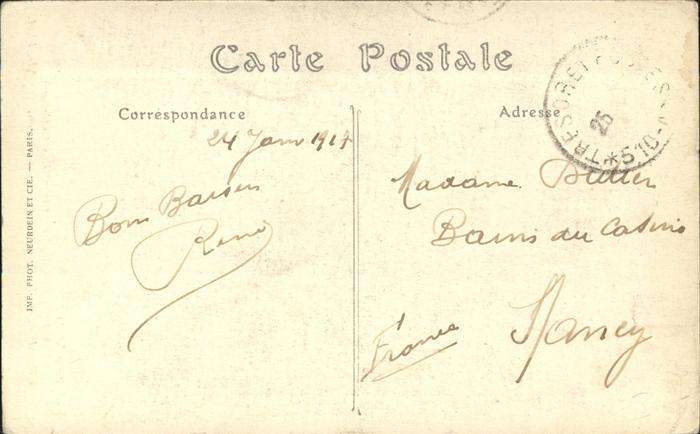 Carte Postale
Correspondance
24 Janv 1917
Bons Baisers
René
Adresse
Madame
Bains du Casino
Nancy
France
TRESOR ET POSTES
25
*510*
IMP. PHOT. NEURDEIN ET CIE. — PARIS.